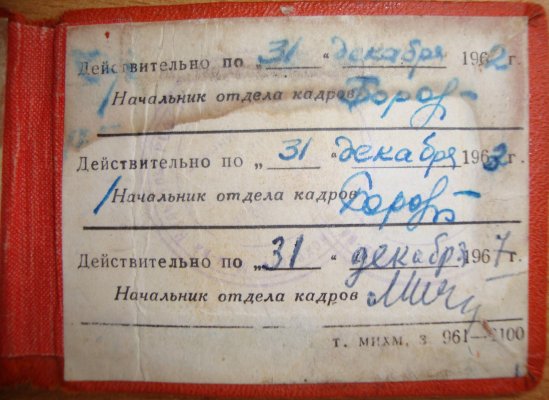 Действительно по „31 “ декабря 1962 г.
Начальник отдела кадров
Действительно по „ 31 “ декабря 1963 г.
Начальник отдела кадров
Действительно по „31 “ декабря 1967 г.
Начальник отдела кадров
т. МИХМ, з 961—1100